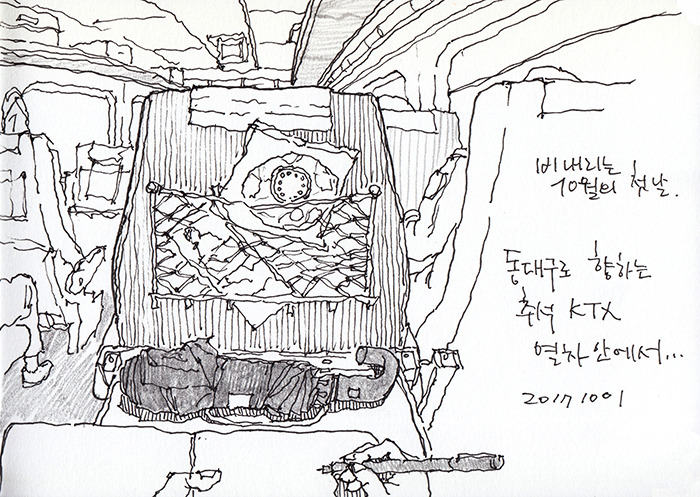 비내리는
10월의 첫날.
동대구로 향하는
추석 KTX
열차 안에서...
20171001